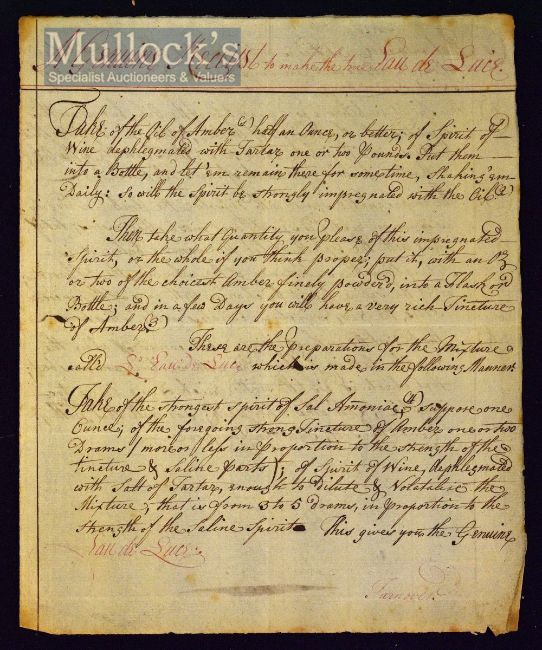 Mullock's
Specialist Auctioneers & Valuers
A Genuine Receipt to make the true Eau de Luce.
Take of the Oil of Amber half an Ounce, or better; of Spirit of
Wine dephlegmated with Tartar one or two Pounds. Put them
into a Bottle, and let 'em remain there for some time, Shaking 'em
Daily: so will the Spirit be strongly impregnated with the Oil
Then take what Quantity you please of this impregnated
Spirit, or the whole if you think proper; put it, with an oz
or two of the choicest Amber finely powder'd, into a Flask or
Bottle; and in a few Days you will have a very rich Tincture
of Amber
These are the preparations for the Mixture
call'd Eau de Luce which is made in the following Manner
Take of the strongest spirit of Sal Amoniac, suppose one
Ounce; of the foregoing strong Tincture of Amber one or two
Drams (more or less in Proportion to the strength of the
tincture & Saline parts); of Spirit of Wine, dephlegmated
with Salt of Tartar, enough to Dilute & Volatilize the
Mixture; that is from 3 to 5 drams, in proportion to the
strength of the Saline Spirit This gives you the Genuine
Eau de Luce.
Turnover.